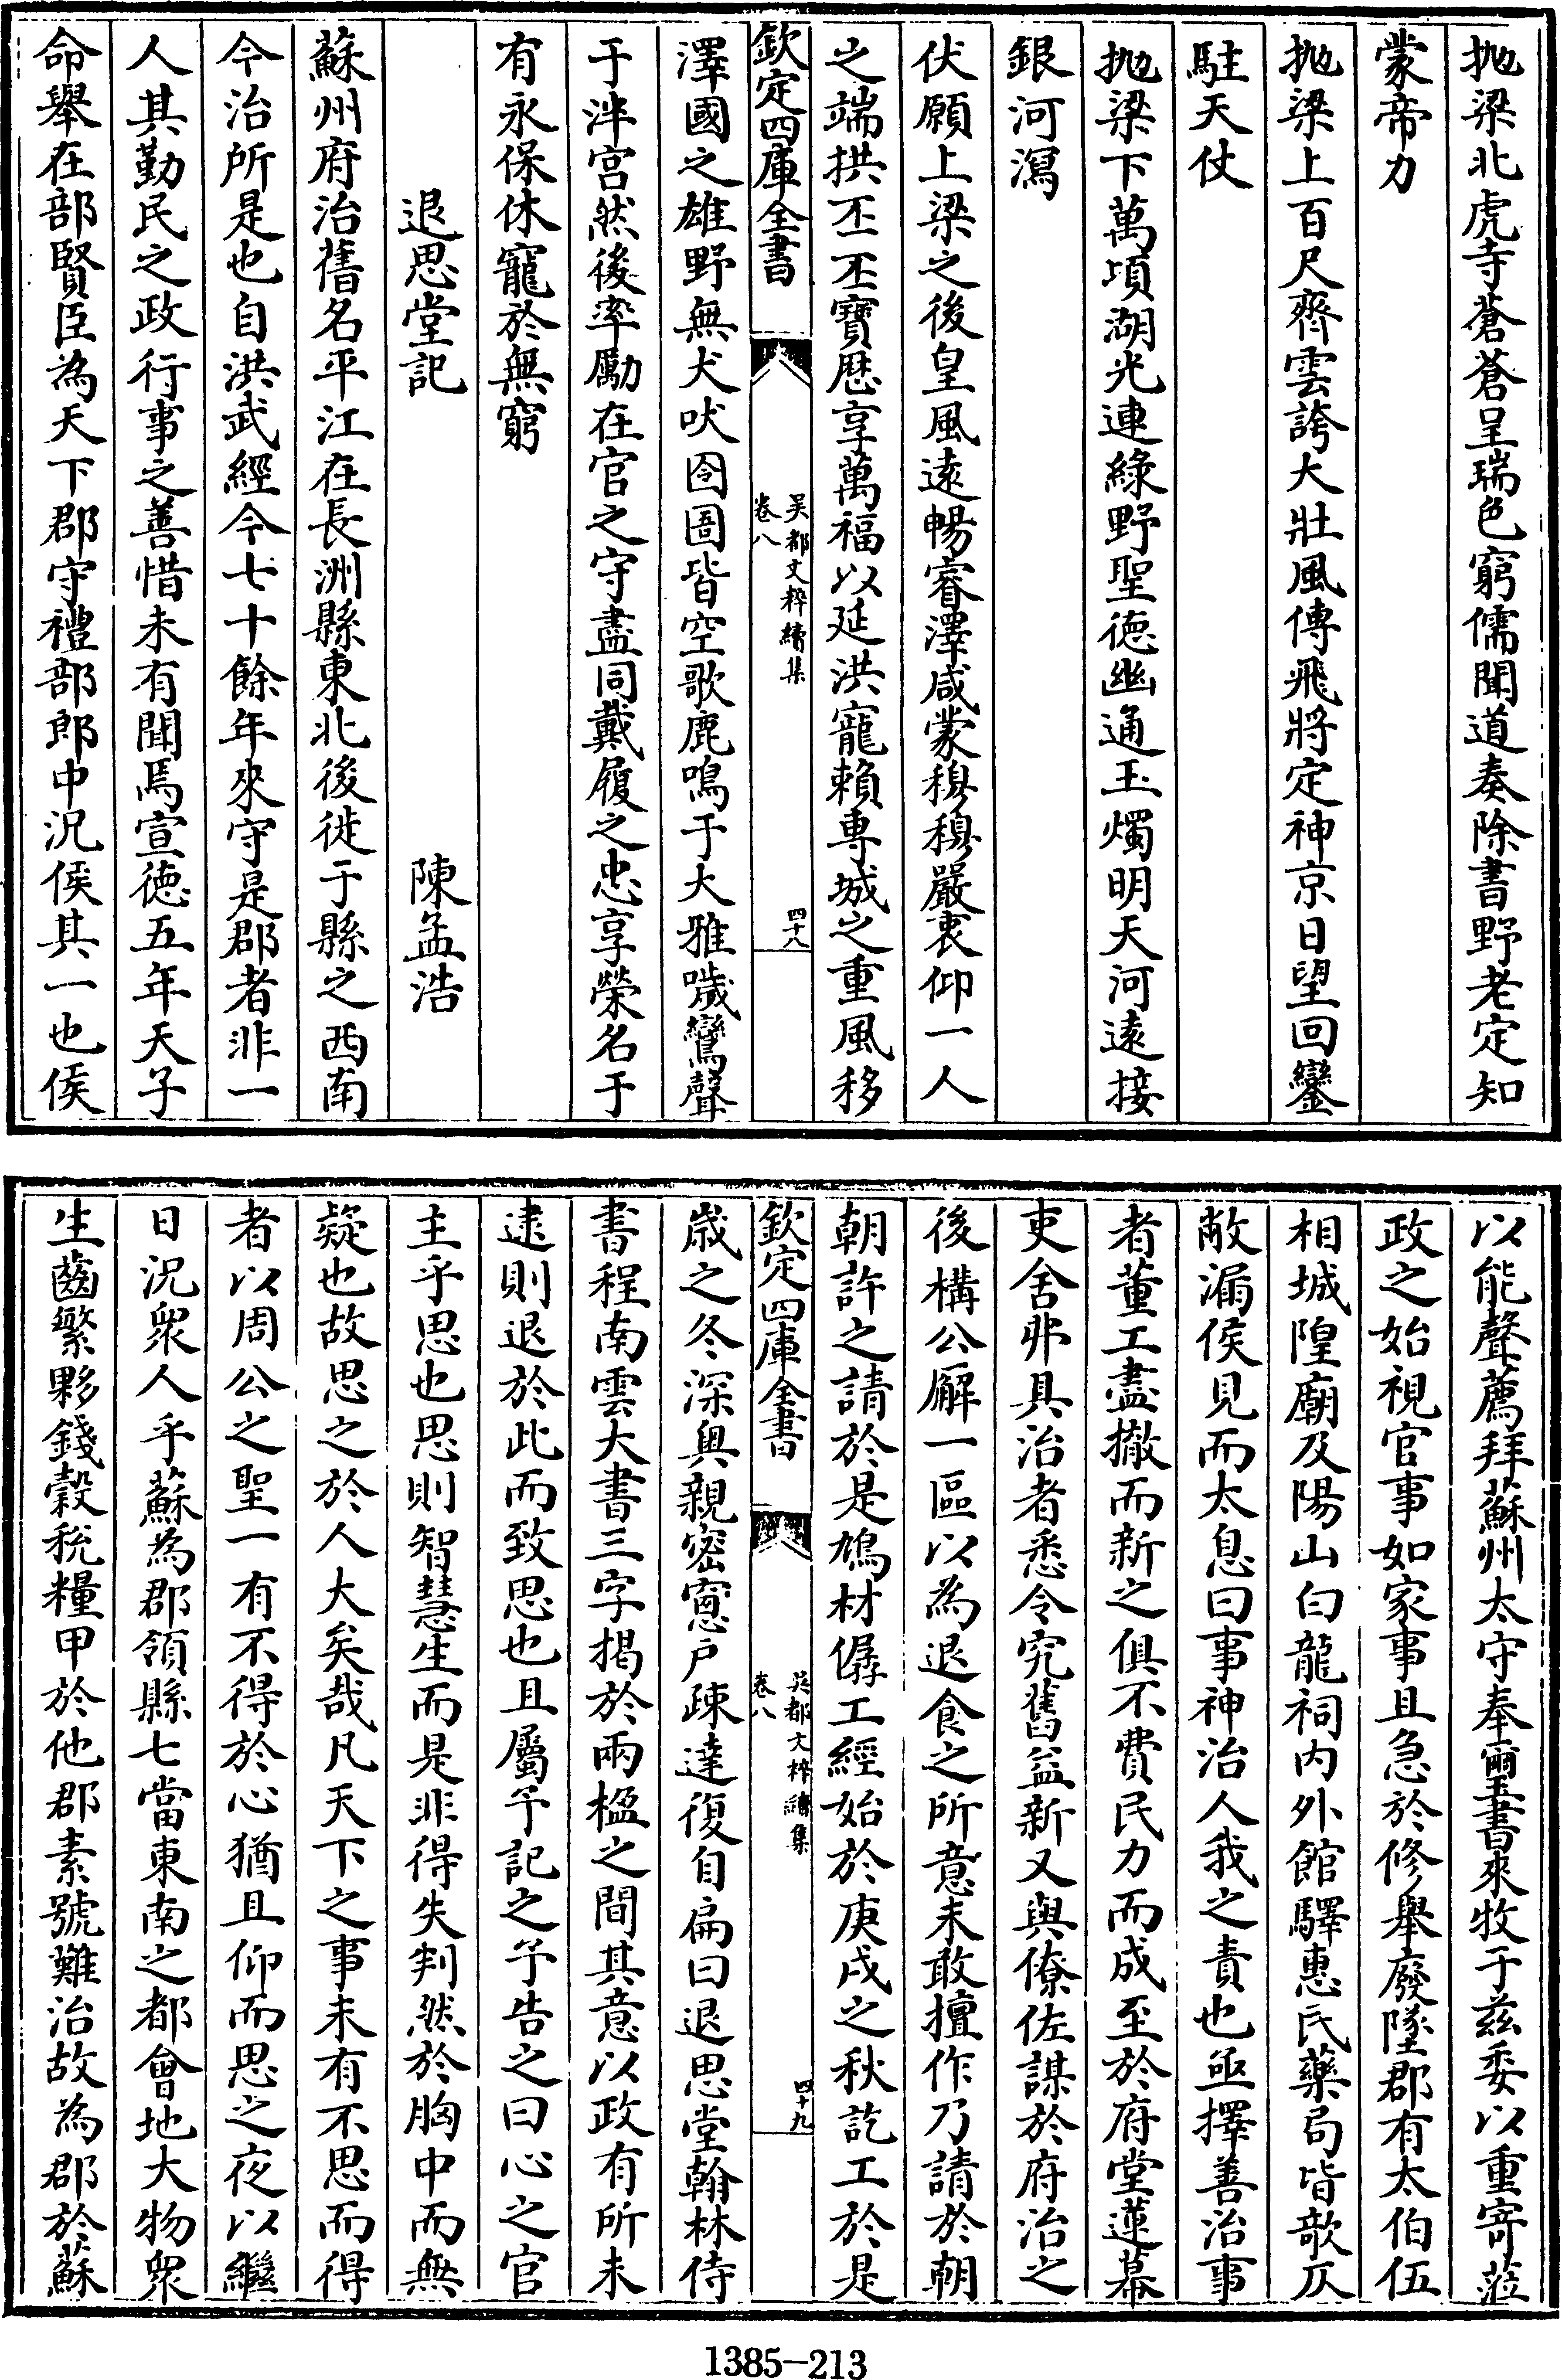 抛梁北虎寺蒼蒼呈瑞色窮儒聞道奏除書野老定知
蒙帝力
抛梁上百尺齊雲誇大壯風傳飛將定神京日望回鑾
駐天仗
抛梁下萬頃湖光連綠野聖徳幽通玉燭明天河遠接
銀河瀉
伏願上梁之後皇風遠暢睿澤咸蒙穆穆嚴衷仰一人
之端拱丕丕寶厯享萬福以延洪寵賴專城之重風移
欽定四庫全書
吴都文粹續集
卷八
四十八
澤國之雄野無犬吠囹圄皆空歌鹿鳴于大雅噦鸞聲
于泮宫然後率勵在官之守盡同戴履之忠享榮名于
有永保休寵於無窮
退思堂記
陳孟浩
蘇州府治舊名平江在長洲縣東北後徙于縣之西南
今治所是也自洪武經今七十餘年來守是郡者非一
人其勤民之政行事之善惜未有聞焉宣徳五年天子
命舉在部賢臣為天下郡守禮部郎中況侯其一也侯
以能聲薦拜蘇州太守奉璽書來牧于兹委以重寄蒞
政之始視官事如家事且急於修舉廢墜郡有太伯伍
相城隍廟及陽山白龍祠内外館驛惠民藥局皆欹仄
敝漏侯見而太息曰事神治人我之責也亟擇善治事
者董工盡撤而新之俱不費民力而成至於府堂蓮幕
吏舍弗具治者悉令究舊益新又與僚佐謀於府治之
後構公廨一區以為退食之所意未敢擅作乃請於朝
朝許之請於是鳩材僝工經始於庚戌之秋訖工於是
欽定四庫全書
吴都文粹續集
卷八
四十九
歳之冬深奥親宻窻户疎達復自扁曰退思堂翰林侍
書程南雲大書三字掲於兩楹之間其意以政有所未
逮則退於此而致思也且屬予記之予告之曰心之官
主乎思也思則智慧生而是非得失判然於胸中而無
疑也故思之於人大矣哉凡天下之事未有不思而得
者以周公之聖一有不得於心猶且仰而思之夜以繼
日況衆人乎蘇為郡領縣七當東南之都會地大物衆
生齒繁夥錢穀稅糧甲於他郡素號難治故為郡於蘇
1385-213